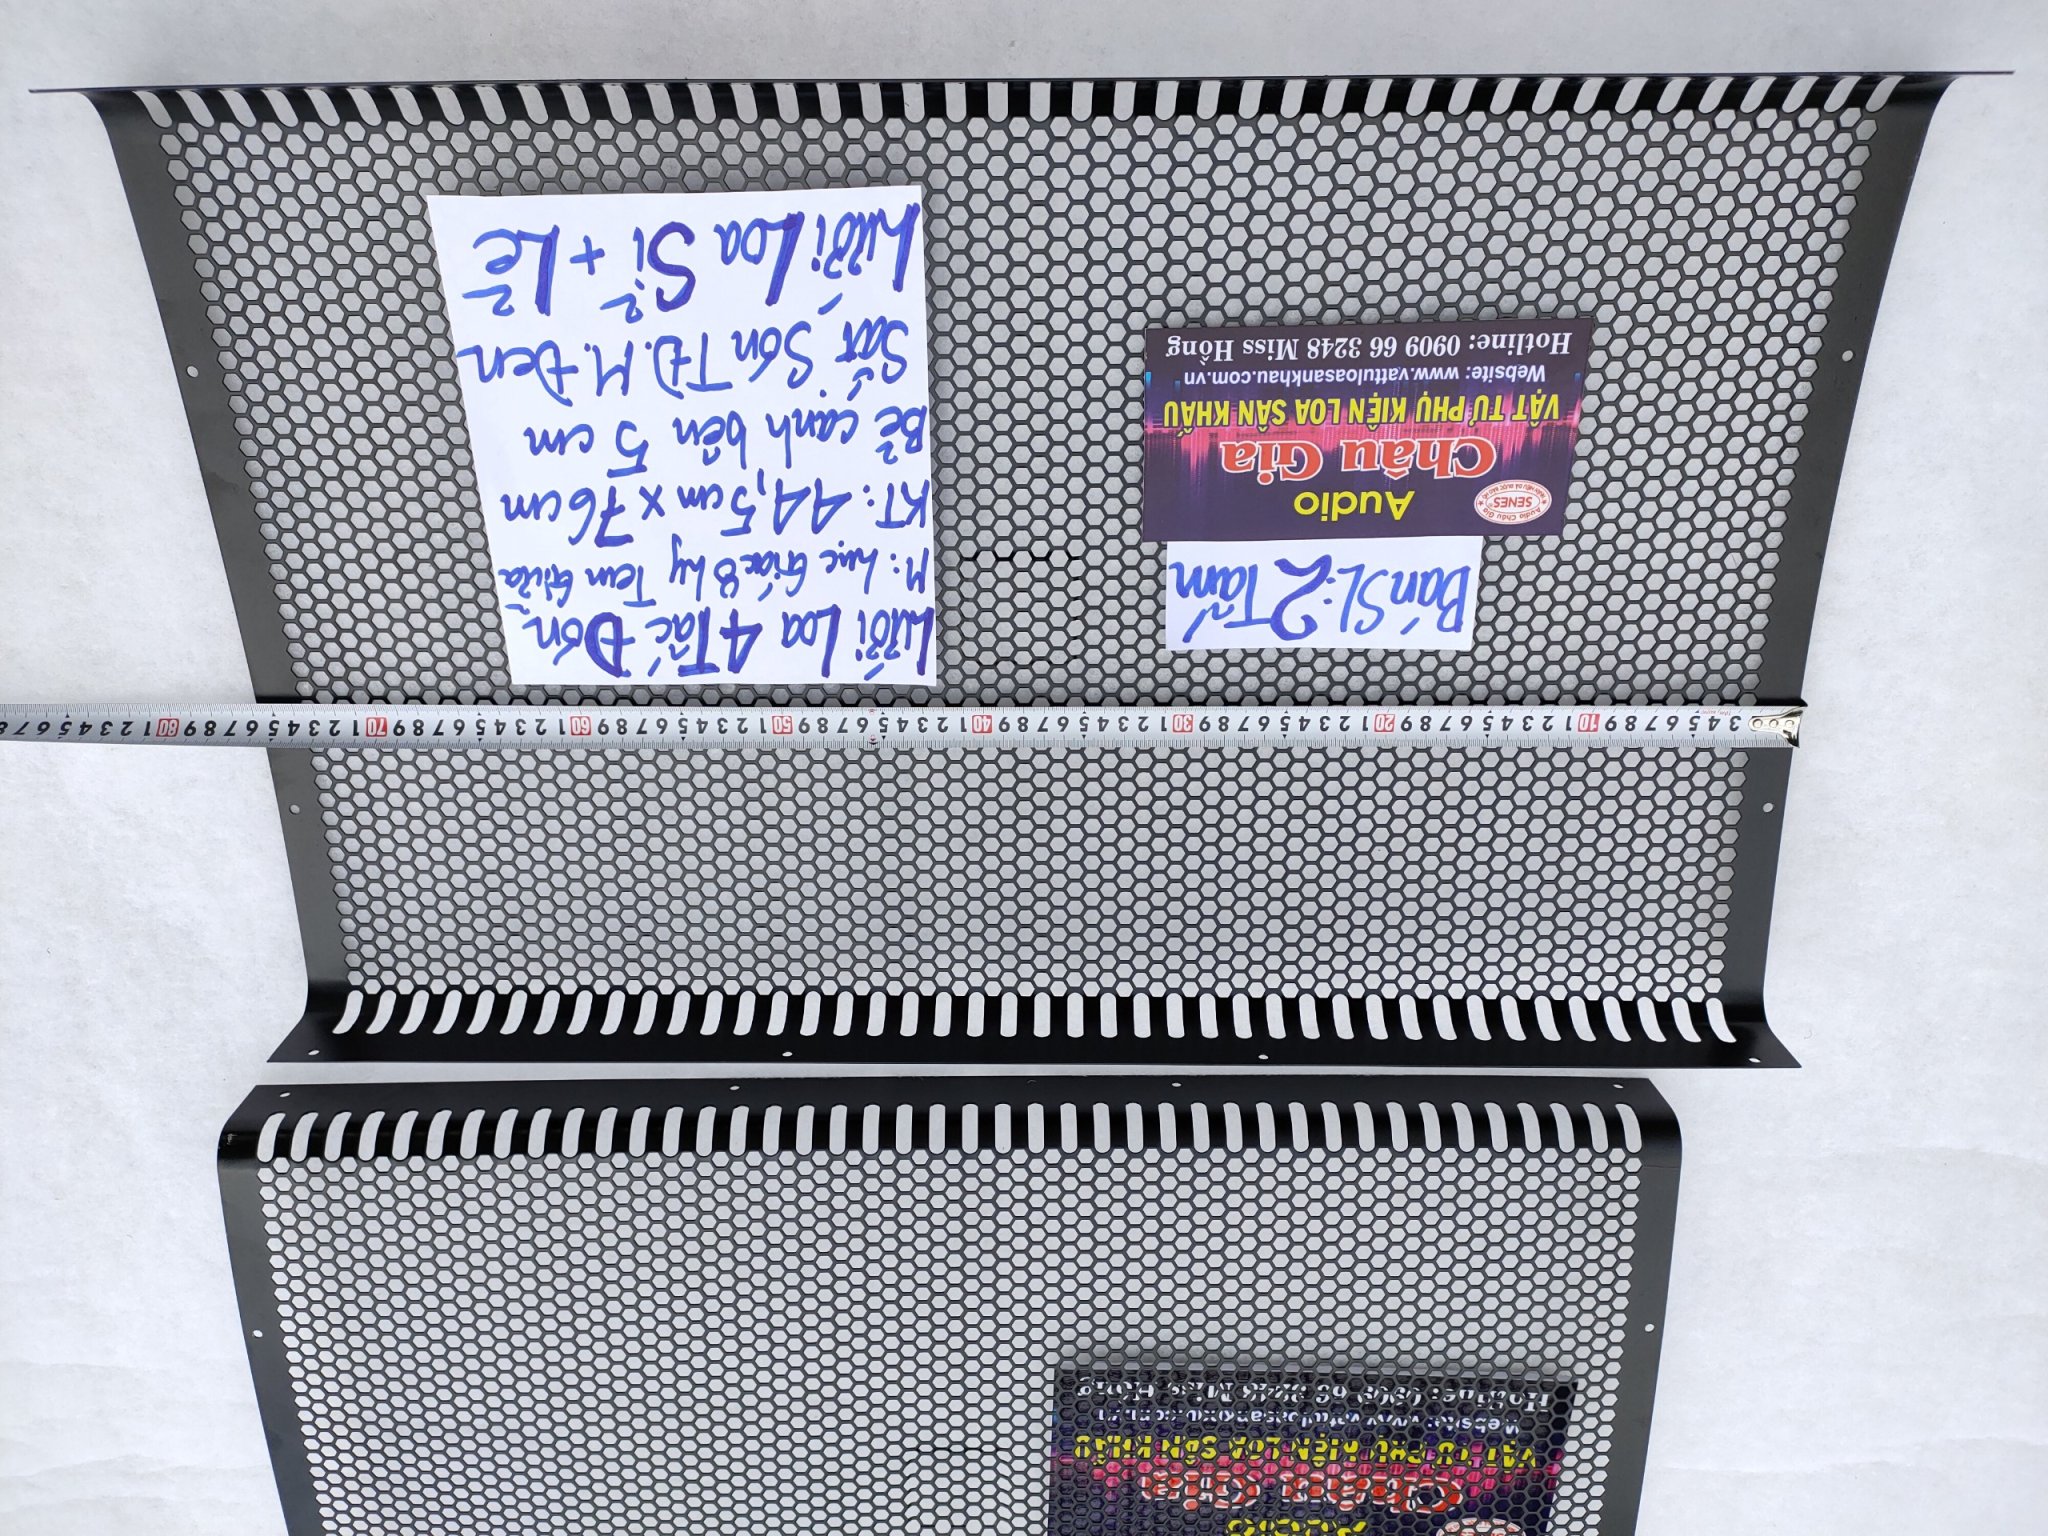 Audio
Châu Gia
VẬT TƯ PHỤ KIỆN LOA SÂN KHẤU
Website: www.vattuloasankhau.com.vn
Hotline: 0909 66 3248 Miss Hồng
3 4 5 6 7 8 9 10 1 2 3 4 5 6 7 8 9 20 1 2 3 4 5 6 7 8 9 30 1 2 3 4 5 6 7 8 9 40 1 2 3 4 5 6 7 8 9 50 1 2 3 4 5 6 7 8 9 60 1 2 3 4 5 6 7 8 9 70 1 2 3 4 5 6 7 8 9 80 1 2 3 4 5 6 7 8
Bán SL: 2 Tấm
SENES
Audio Châu Gia
Audio
Châu Gia
VẬT TƯ PHỤ KIỆN LOA SÂN KHẤU
Website: www.vattuloasankhau.com.vn
Hotline: 0909 66 3248 Miss Hồng
Lưới Loa 4 Tấc Đơn
M: Lục Giác 8 ly Tem Giữa
KT: 44,5cm x 76cm
Bẻ cạnh bên 5 cm
Sắt Sơn TĐ. M. Đen
Lưới Loa Sỉ + Lẻ